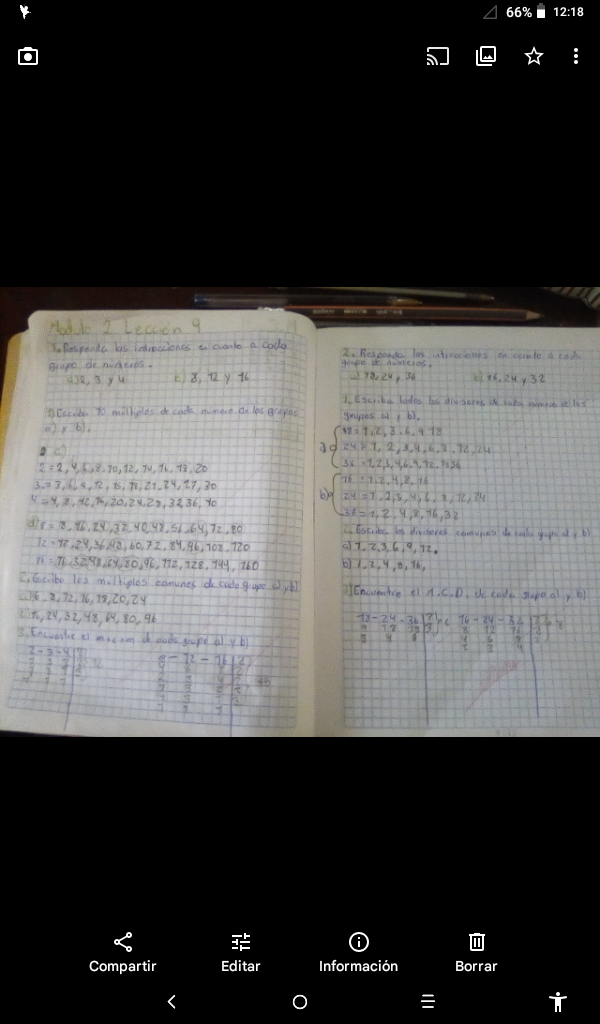 66% 12:18
Modulo 2 Lección 9
1. Responda las intrucciones en cuanto a cada
grupo de numeros.
2, 3 y 4 8, 12 y 16
Escriba 10 múltiplos de cada número de los grupos
a) y b).
2 = 2, 4, 6, 8, 10, 12, 14, 16, 18, 20
3 = 3, 6, 9, 12, 15, 18, 21, 24, 27, 30
4 = 4, 8, 12, 16, 20, 24, 28, 32, 36, 40
8 = 8, 16, 24, 32, 40, 48, 56, 64, 72, 80
12 = 12, 24, 36, 48, 60, 72, 84, 96, 108, 120
16 = 16, 32, 48, 64, 80, 96, 112, 128, 144, 160
2. Escriba los multiplos comunes de cada grupo a) y b)
6, 8, 12, 16, 18, 20, 24
16, 24, 32, 48, 64, 80, 96
3. Encuentre el m.c.m de cada grupo a) y b)
2 - 3 - 4 2
8 - 12 - 16 2
2. Responda las intrucciones en cuanto a cada
grupo de numeros.
18, 24 y 36 16, 24 y 32
1. Escriba todos los divisores de cada número de los
grupos a) y b).
a) 18 = 1, 2, 3, 6, 9, 18
24 = 1, 2, 3, 4, 6, 8, 12, 24
36 = 1, 2, 3, 4, 6, 9, 12, 18 36
b) 16 = 1, 2, 4, 8, 16
24 = 1, 2, 3, 4, 6, 8, 12, 24
= 1, 2, 4, 8, 16, 32
2. Escriba los divisores comunes de cada grupo a) y b)
a) 1, 2, 3, 6, 9, 12.
b) 1, 2, 4, 8, 16,
Encuentre el M.C.D. de cada grupo a) y b)
18 - 24 - 36 2 16 - 24 - 32 2
9 12 18 8 12 16
Compartir Editar Información Borrar